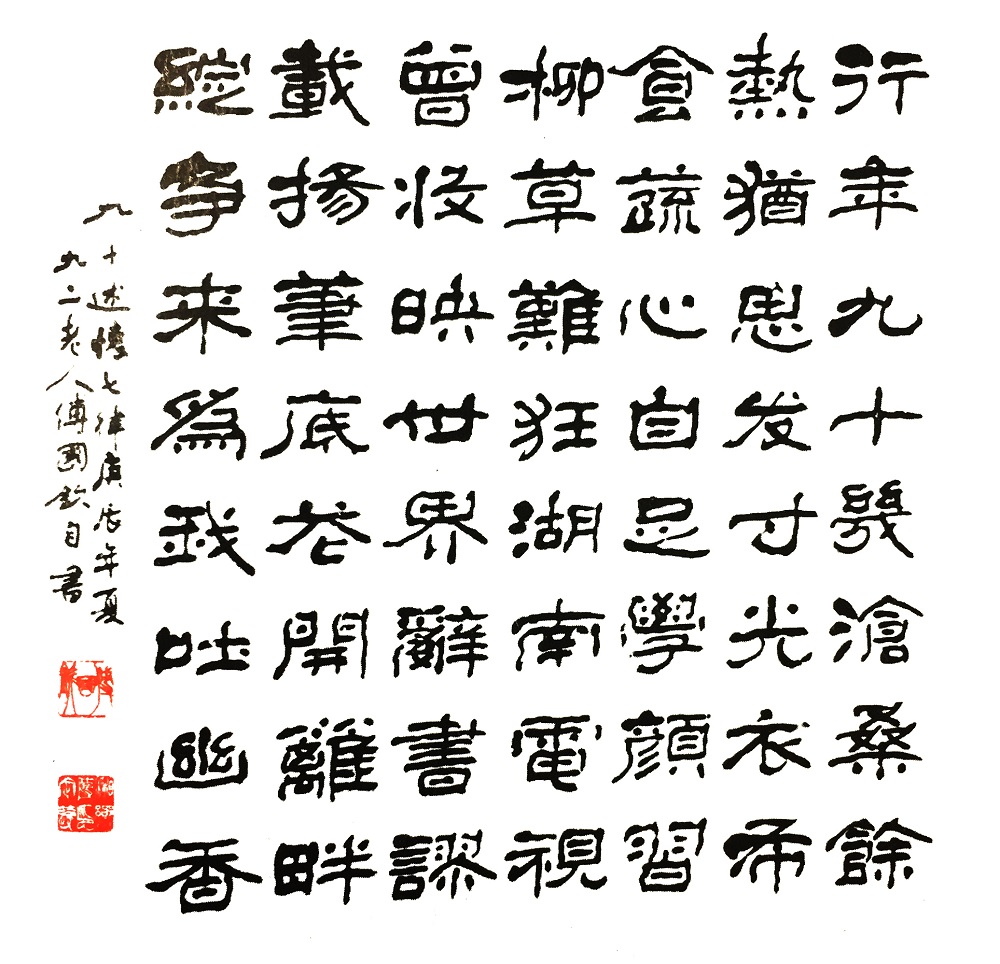 行年九十幾滄桑餘
熱猶思发寸光衣布
食蔬心自足學顔習
柳草難狂湖南電視
曾收映世界辭書謬
載揚筆底花開離畔
綻争来爲我吐幽香
九十述懷七律庚辰年夏
九二老人傅國欽自書